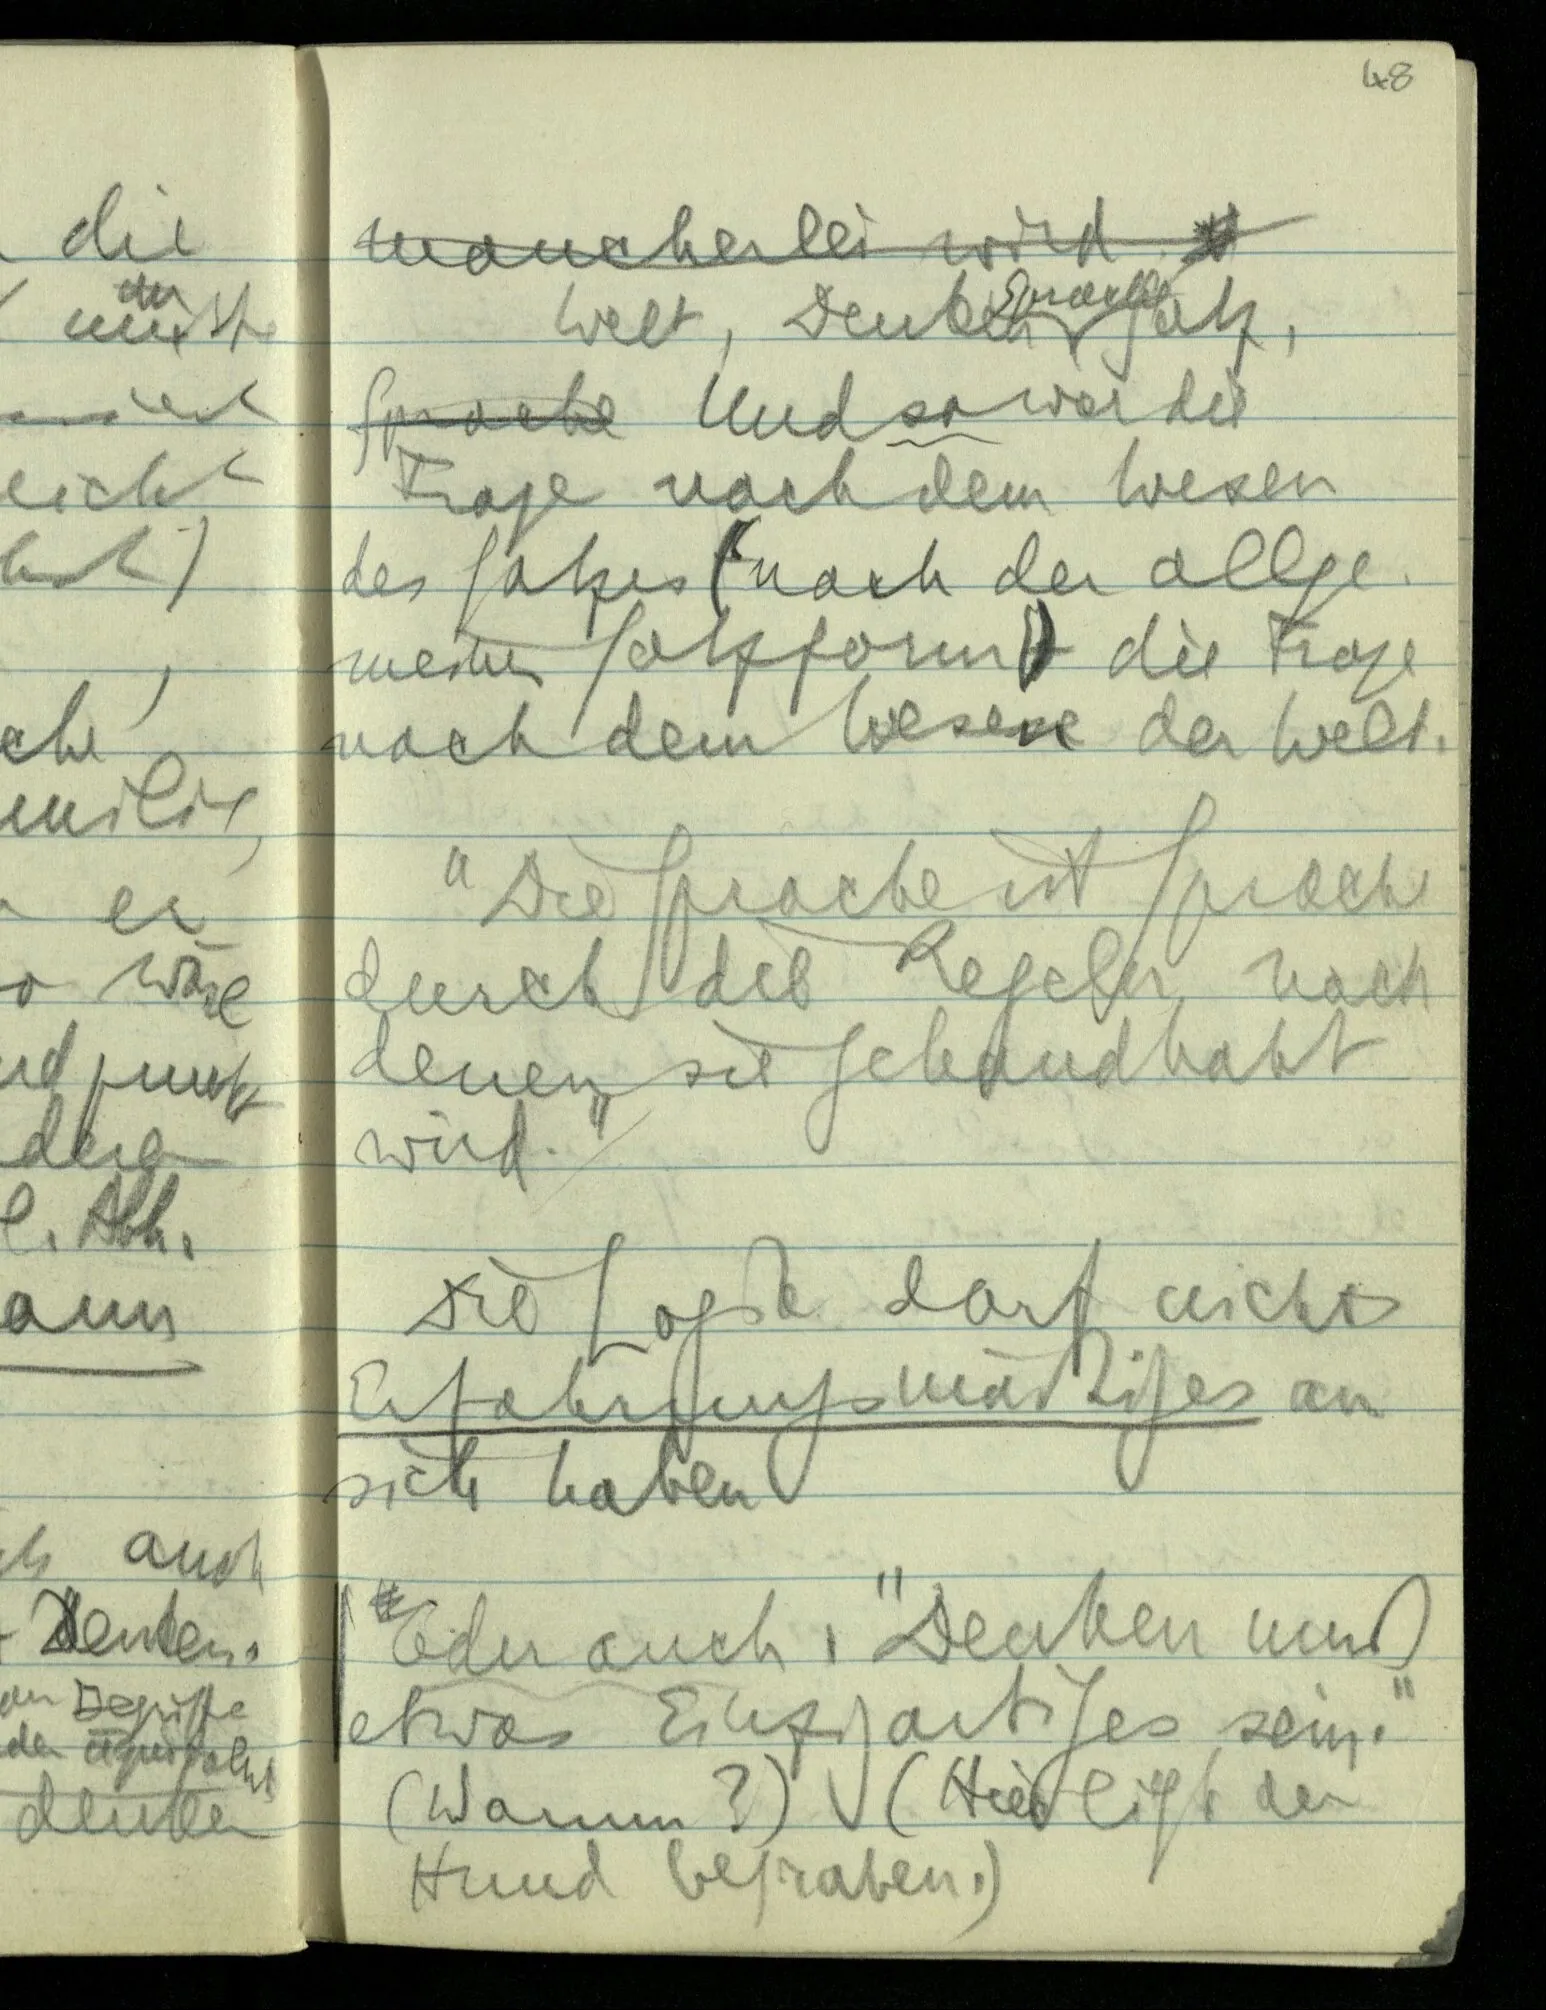 48
die
mancherlei wird
der
Sprache
Welt, Denken Satz,
Sprache Und so war die
eicht
Frage nach dem Wesen
des Satzes (nach der allge-
meinen Satzform) die Frage
nach dem Wesen der Welt.
"Die Sprache ist Sprache
er
durch die Regeln, nach
wäre
denen sie gehandhabt
wird."
l. Abh.
Die Logik darf nichts
ann
Erfahrungsmäßiges an
sich haben
auch
Oder auch: "Denken muß
Denken.
etwas Einzigartiges sein."
der Begriffe
(Warum?) (Hier liegt der
denken
Hund begraben.)